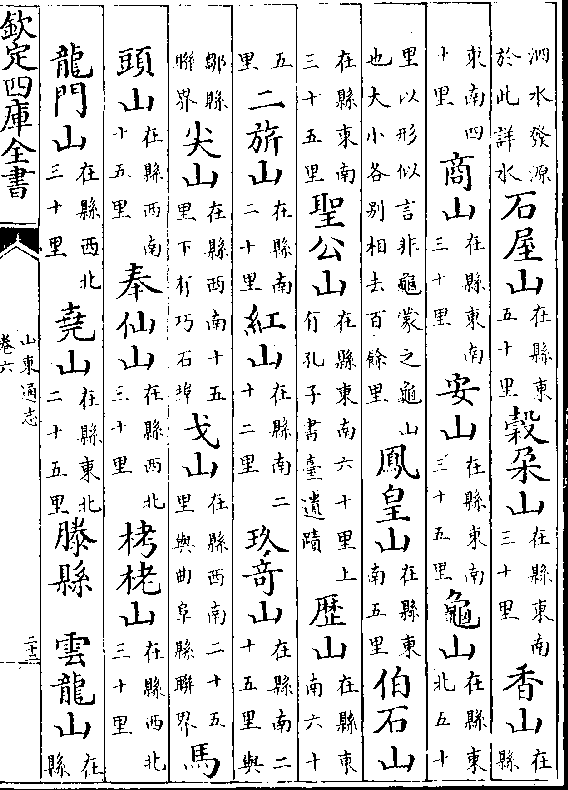 泗水發源於此詳水石屋山在縣東五十里榖朶山在縣東南三十里香山在縣
東南四十里商山在縣東南三十里安山在縣東南三十五里龜山在縣東北五十
里以形似言非龜蒙之龜山也大小各别相去百餘里鳳皇山在縣東南五里伯石山
在縣東南三十五里聖公山在縣東南六十里上有孔子書臺遺蹟歴山在縣東南六十
五里二旂山在縣南二十里紅山在縣南二十二里玖奇山在縣南二十五里與
鄒縣聯界尖山在縣西南十五里下有巧石埠戈山在縣西南二十五里與曲阜縣聯界馬
頭山在縣西南十五里奉仙山在縣西北三十里栲栳山在縣西北三十里
龍門山在縣西北三十里堯山在縣東北二十五里滕縣 雲龍山在縣
欽定四庫全書
山東通志
卷六
二十三